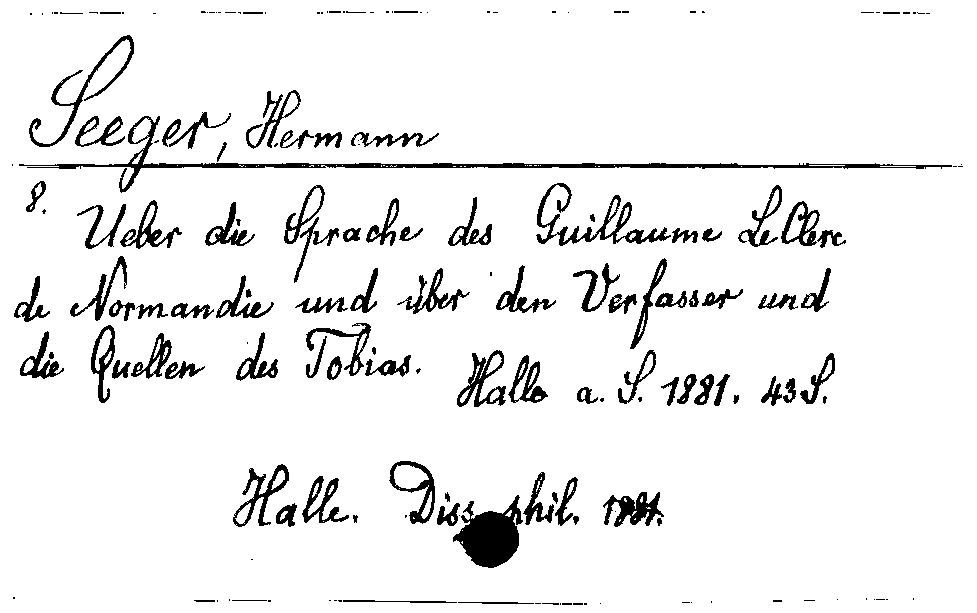 Seeger, Hermann
8. Ueber die Sprache des Guillaume Le Clerc
de Normandie und über den Verfasser und
die Quellen des Tobias.
Halle a. S. 1881. 43 S.
Halle. Diss. phil. 1881.